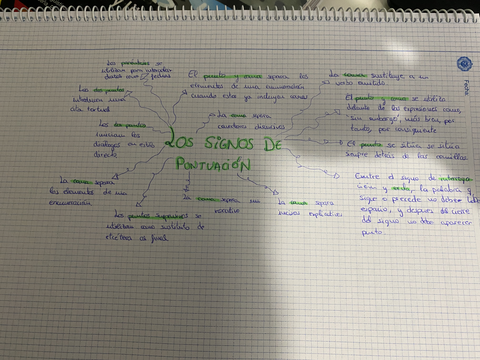 Los paréntesis se
utilizan para intercalar
datos como fechas
Los dos puntos
introducen una
cita textual
Los dos puntos
inician los
diálogos en estilo
directo
La coma separa
los elementos de una
enumeración
Los puntos suspensivos se
utilizan como sustituto de
etcétera al final
El punto y coma separa los
elementos de una enumeración
cuando esta ya incluye comas
La coma separa
LOS SIGNOS DE
PUNTUACIÓN
La coma separa un
vocativo
La coma separa
incisos explicativos
La coma sustituye a un
verbo omitido
El punto y coma se utiliza
delante de las expresiones como,
sin embargo, más bien, por
tanto, por consiguiente
El punto se sitúa se sitúa
siempre detrás de las comillas
Entre el signo de
y la palabra q
sigue o precede no debe
espacio, y después del cierre
del signo no debe aparecer
punto
Fecha